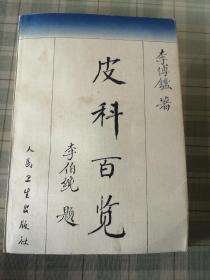 李博鑑 著
皮科百览
李伯纯 题
人民卫生出版社